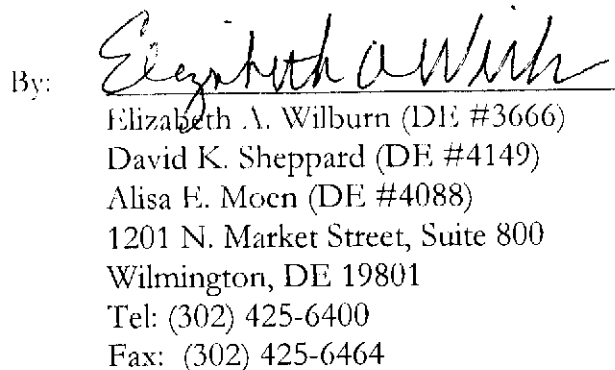 By: Elizabeth A Wilb
Elizabeth A. Wilburn (DE #3666)
David K. Sheppard (DE #4149)
Alisa E. Moen (DE #4088)
1201 N. Market Street, Suite 800
Wilmington, DE 19801
Tel: (302) 425-6400
Fax: (302) 425-6464